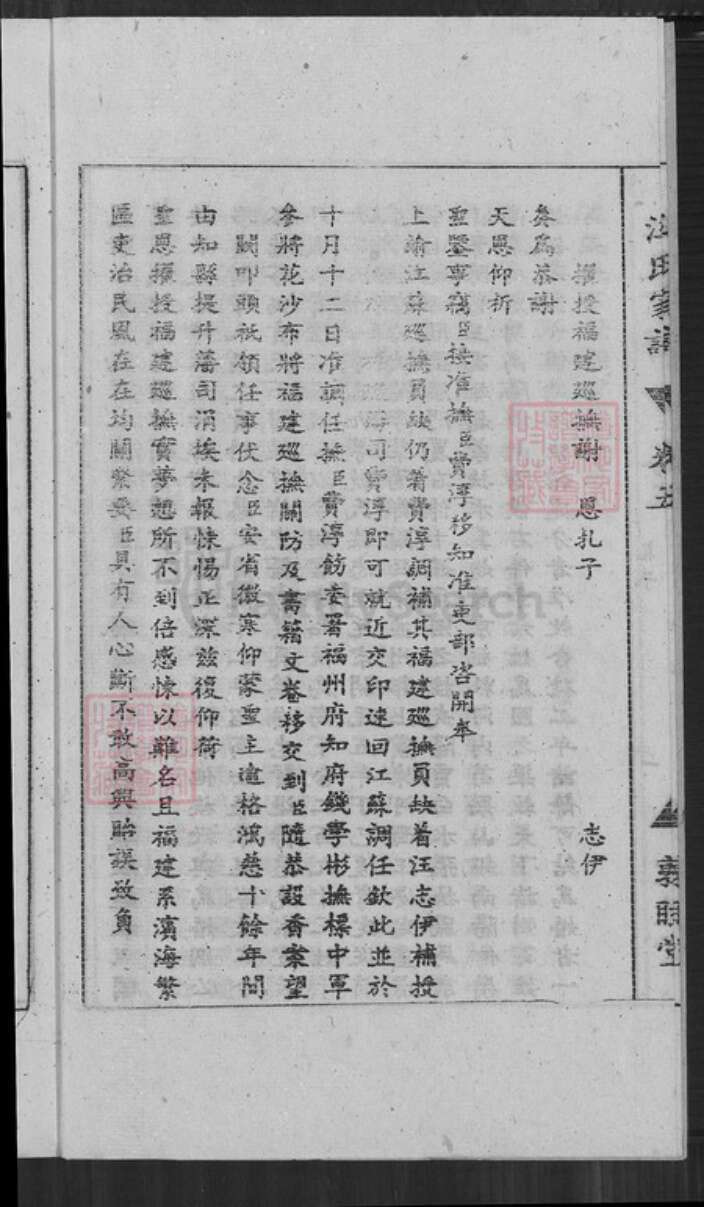 汪氏家譜 卷五 敦睦堂
擢授福建巡撫謝 恩扎子 志伊
奏為恭謝
天恩仰祈
聖鑒事竊臣接准撫臣費淳移知准吏部咨開奉
上諭江蘇巡撫員缺仍着費淳調補其福建巡撫員缺着汪志伊補授
司費淳即可就近交印速回江蘇調任欽此並於
十月十二日准調任撫臣費淳飭委署福州府知府錢學彬撫標中軍
參將花沙布將福建巡撫關防及書籍文卷移交到臣隨恭設香案望
闕叩頭祇領任事伏念臣安省微寒仰蒙聖主逾格鴻慈十餘年間
由知縣提升藩司涓埃未報悚惕正深茲復仰荷
聖恩擢授福建巡撫實夢想所不到倍感悚以難名且福建系濱海繁
區吏治民風在在均關繁要臣具有人心斷不敢高興貽誤致負